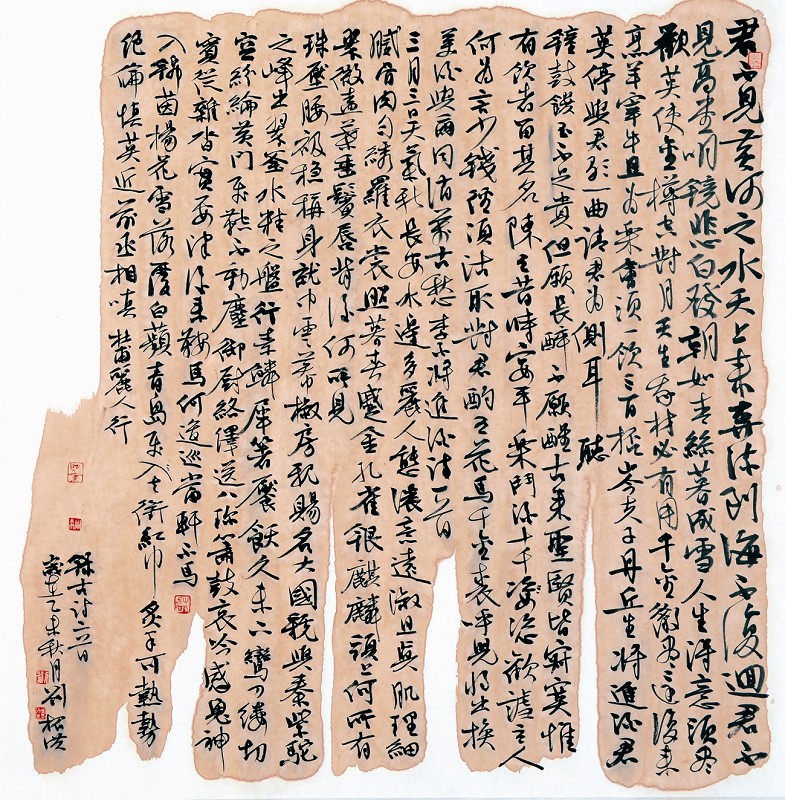 君不見黃河之水天上來奔流到海不復迴君不
見高堂明鏡悲白發朝如青絲暮成雪人生得意須盡
歡莫使金樽空對月天生我材必有用千金散盡還復來
烹羊宰牛且為樂會須一飲三百杯岑夫子丹丘生將進酒君
莫停與君歌一曲請君為側耳聽
鐘鼓饌玉不足貴但願長醉不願醒古來聖賢皆寂寞惟
有飲者留其名陳王昔時宴平樂鬥酒十千恣歡謔主人
何為言少錢徑須沽取對君酌五花馬千金裘呼兒將出換
美酒與爾同銷萬古愁李白將進酒詩一首
三月三日天氣新長安水邊多麗人態濃意遠淑且真肌理細
膩骨肉勻繡羅衣裳照暮春蹙金孔雀銀麒麟頭上何所有
翠微葉垂鬢唇背後何所見
珠壓腰衱穩稱身就中雲幕椒房親賜名大國虢與秦紫駝
之峰出翠釜水精之盤行素鱗犀箸饜飫久未下鸞刀縷切
空紛綸黃門飛鞚不動塵御廚絡繹送八珍簫鼓哀吟感鬼神
賓從雜沓實要津後來鞍馬何逡巡當軒下馬
入錦茵楊花雪落覆白蘋青鳥飛去銜紅巾炙手可熱勢
絕倫慎莫近前丞相嗔 杜甫麗人行
錄古詩二首
歲在乙未秋月劉